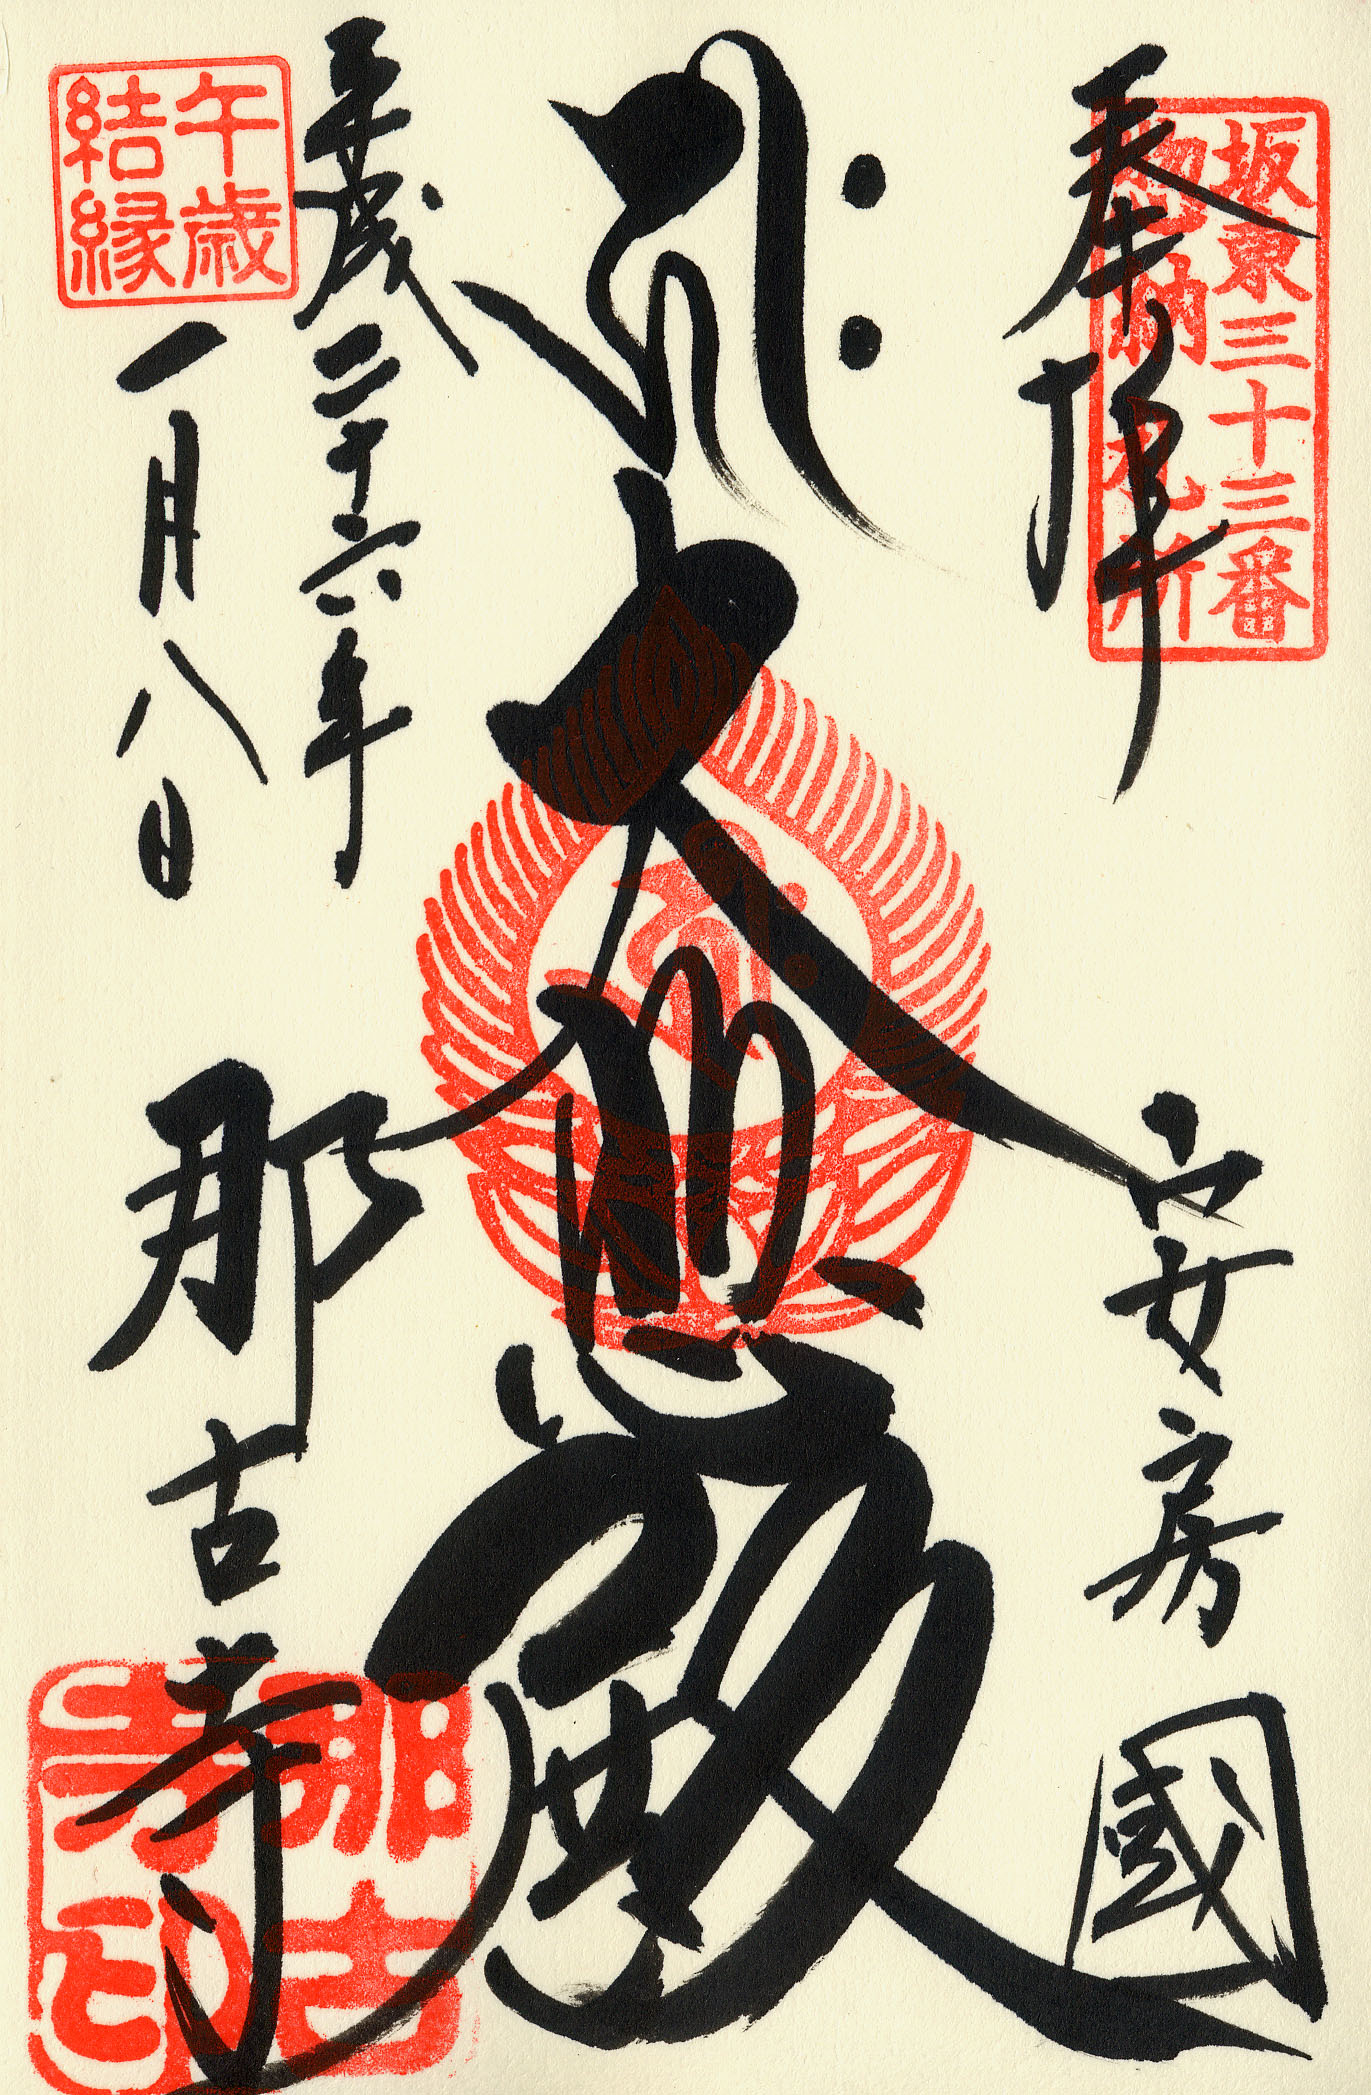 奉拝
坂東三十三番
納札所
安房國
大悲殿
平成二十六年
一月八日
午歳
結縁
那古寺
那古
寺印